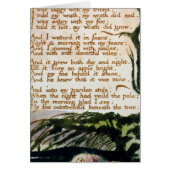 I told my wrath, my wrath did end.
I was angry with my foe:
I told it not, my wrath did grow.
And I waterd it in fears,
Night & morning with my tears:
And I sunned it with smiles,
And with soft deceitful wiles.
And it grew both day and night,
Till it bore an apple bright.
And my foe beheld it shine,
And he knew that it was mine.
And into my garden stole,
When the night had veild the pole;
In the morning glad I see,
My foe outstretchd beneath the tree.